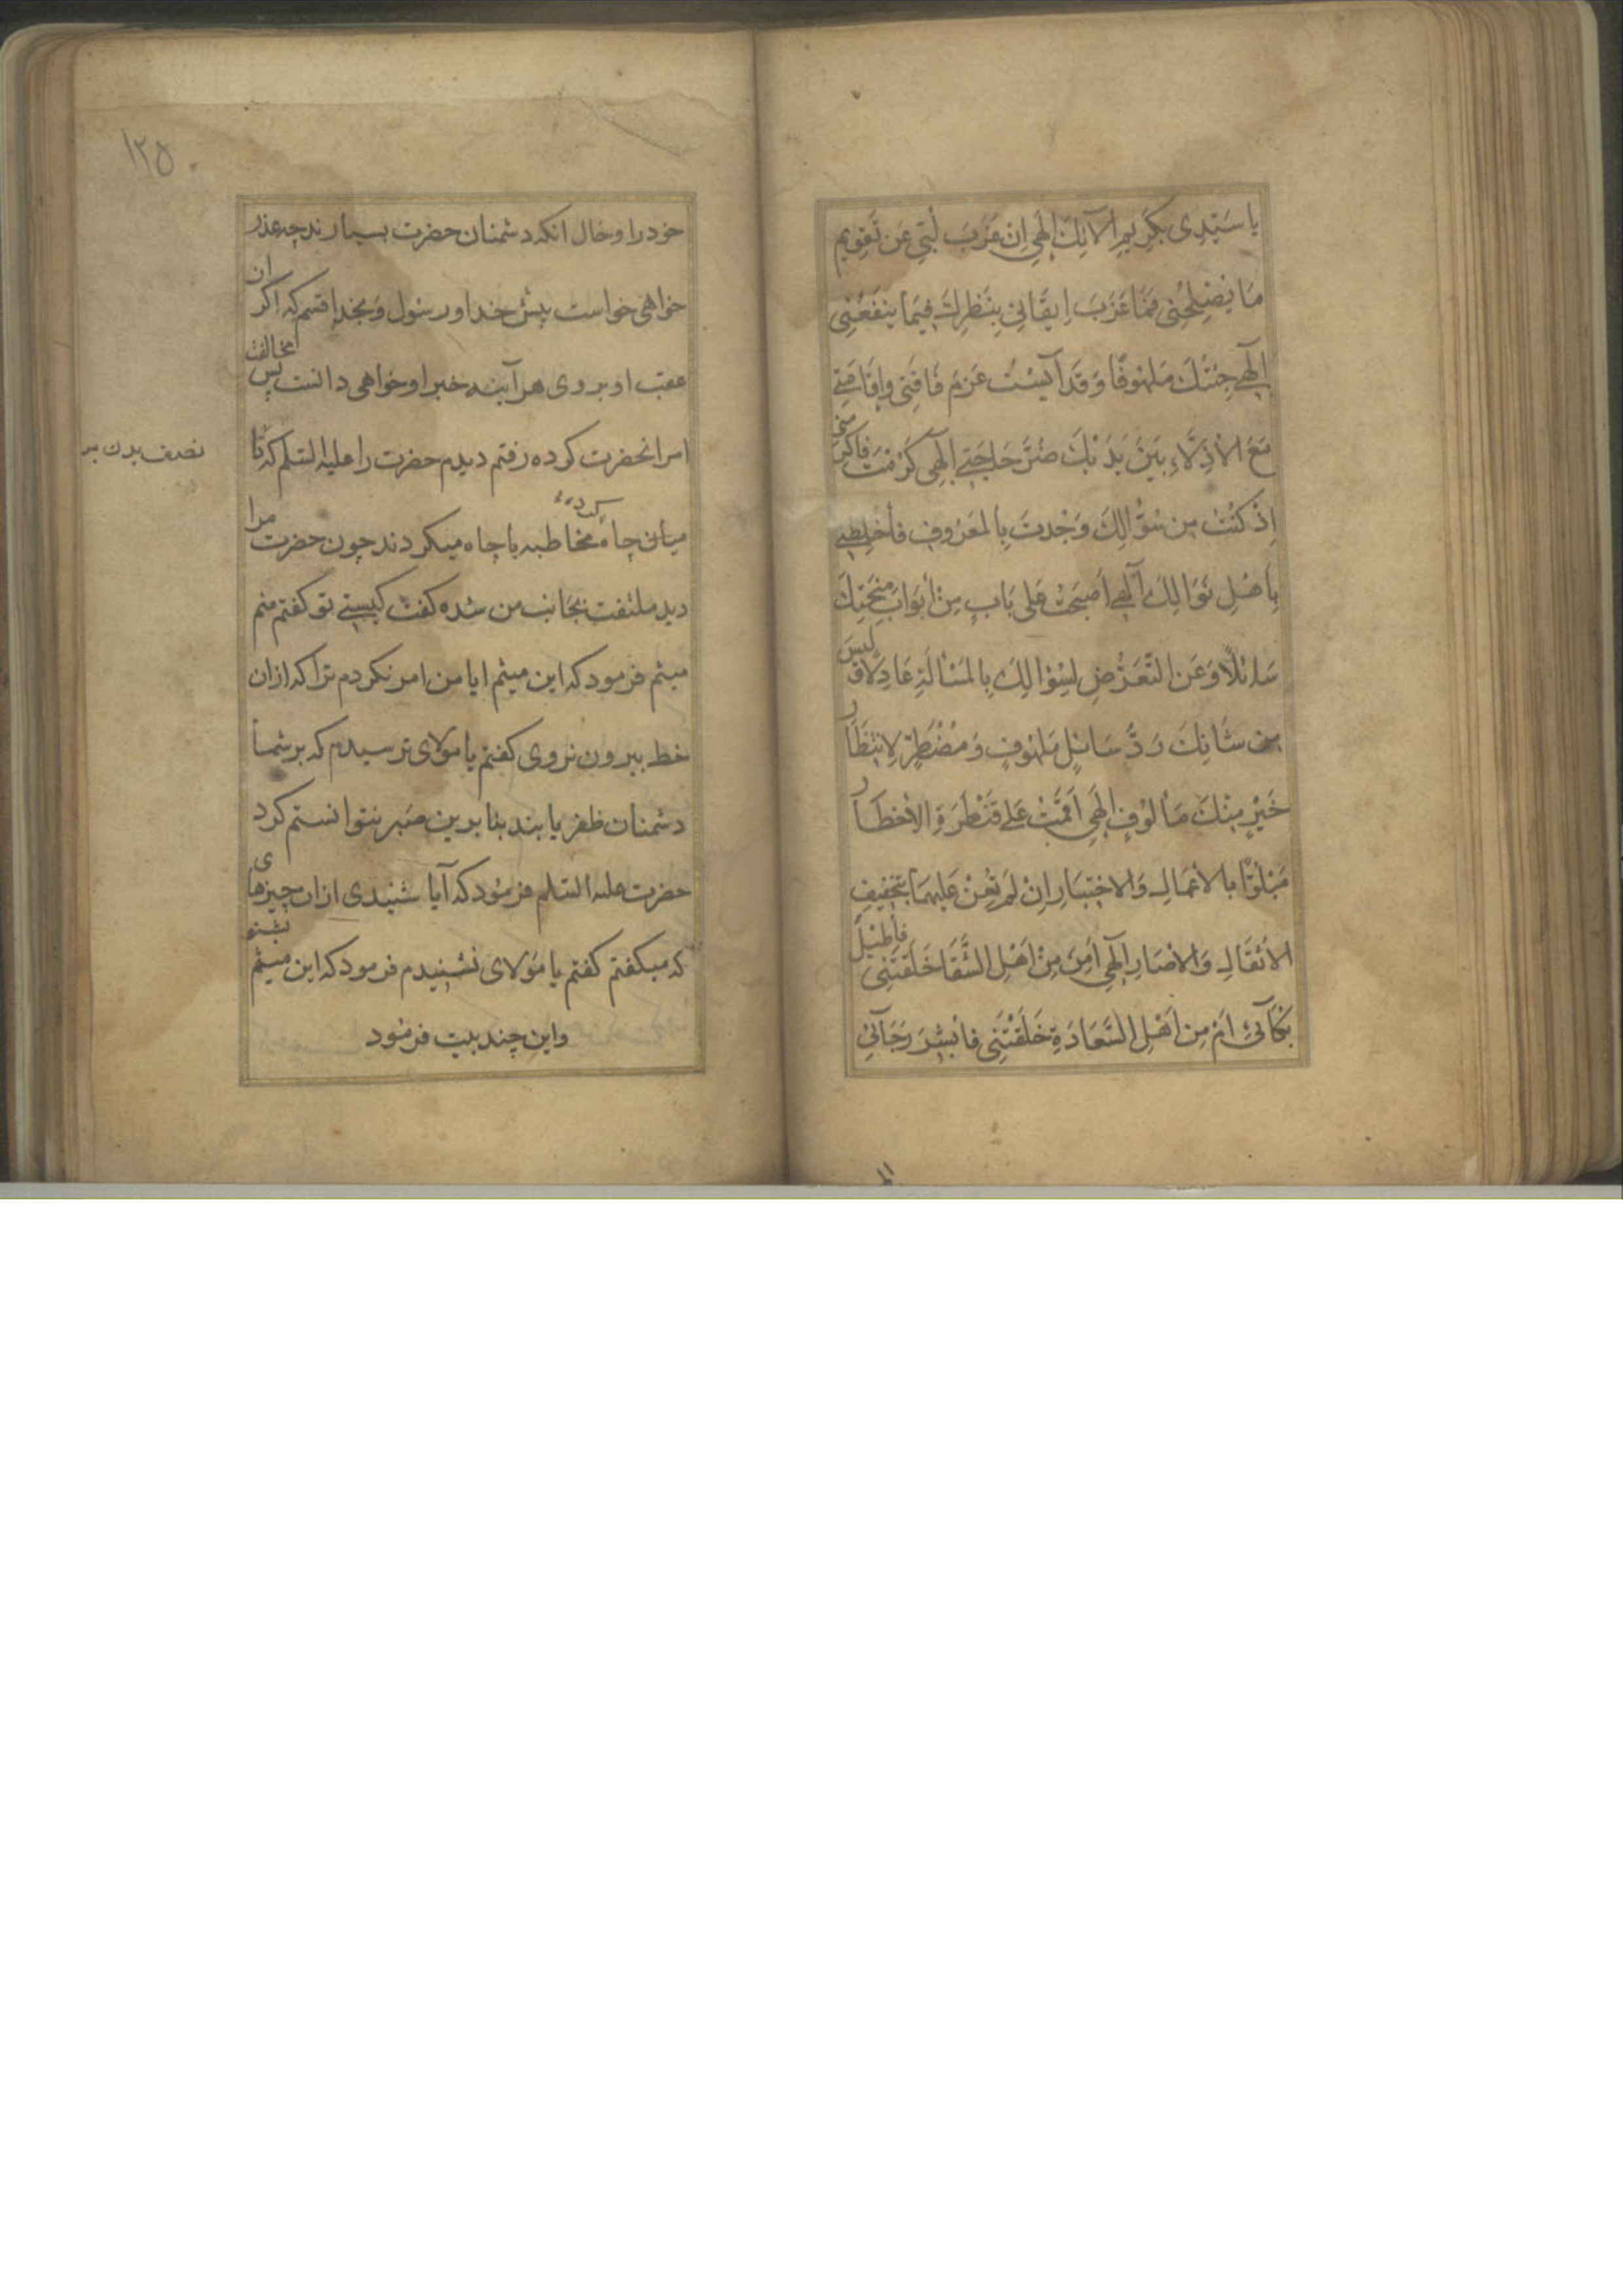 یا سَیّدِی بِکَرِیمِ اٰلائِکَ اِلٰهِی اِنْ عَزَبَ لُبّی عَن تَقوِیمِ
مَا یُصْلِحُنِی فَمَا عَزَبَ اِیقَانِی بِنَظَرِکَ فِیمَا یَنفَعُنِی
اِلٰهِی جِئتُکَ مَلهُوفًا وَقَد اُلبِستُ عَدَمَ فَاقَتِی وَاَقَامَنِی
مَعَ الاَذِلّاءِ بَینَ یَدَیکَ ضُرُّ حَاجَتِی اِلٰهِی کَرُمتَ فَاکرِمنی
اِذْ کُنتُ مِن سُؤّالِکَ وَجُدتَ بِالمَعرُوفِ فَاخلِطنِی
بِاَهلِ نَوَالِکَ اِلٰهِی اَصبَحتُ عَلی بَابٍ مِن اَبوَابِ مِنَحِکَ
سَائلًا وَعَن التّعَرُّضِ لِسِوَاکَ بِالمَسْاَلَةِ عَادِلًا وَلَیسَ
مِن شَانِکَ رَدُّ سَائلٍ مَلهُوفٍ وَمُضْطَرٍّ لِانتِظَارِ
خَیرٍ مِنکَ مَالُوفٍ اِلٰهِی اَقَمتُ عَلی قَنطَرَةِ الاَخطَارِ
مَبلُوًّا بِالاَعمَالِ وَالاِختِبَارِ اِنْ لَم تُعِنْ عَلَیهِمَا بِتَخفِیفِ
الاَثقَالِ وَالاٰصَارِ اِلٰهِی اَمِن مِن اَهلِ الشَّقَا خَلَقتَنِی فَاُطِیلَ
بُکَائِی اَم مِن اَهلِ السَّعَادَةِ خَلَقتَنِی فَاُبَشِّرَ رَجَائِی
۱۲۵
خود را و حال انکه دشمنان حضرت بسیارند چه عذر
خواهی خواست پیش خدا و رسول و بخدا قسم که اکر ان
عقب او بروی هر آینه خبر او خواهی دانست پس مخالفت
امر انحضرت کرده رفتم دیدم حضرت را علیه السلم که تا
نصف بدن بر
میان چاه کرده مخاطبه با چاه میکردند چون حضرت مرا
دید ملتفت بجانب من شده کفت کیستی تو کفتم منم
میثم فرمود که این میثم ایا من امر نکردم ترا که ازان
خط بیرون نروی کفتم یا مولای ترسیدم که بر شما
دشمنان ظفر یابند بنابرین صبر نتوانستم کرد
حضرت علیه السلم فرمود که آیا شنیدی ازان چیزهای
که میکفتم کفتم یا مولای نشنیدم فرمود که این میثم بشنو
و این چند بیت فرمود